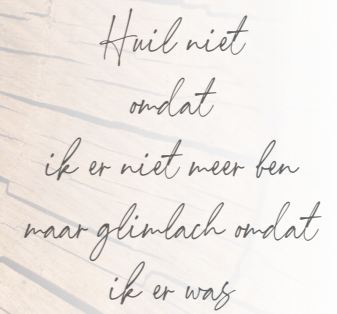 Huil niet
omdat
ik er niet meer ben
maar glimlach omdat
ik er was